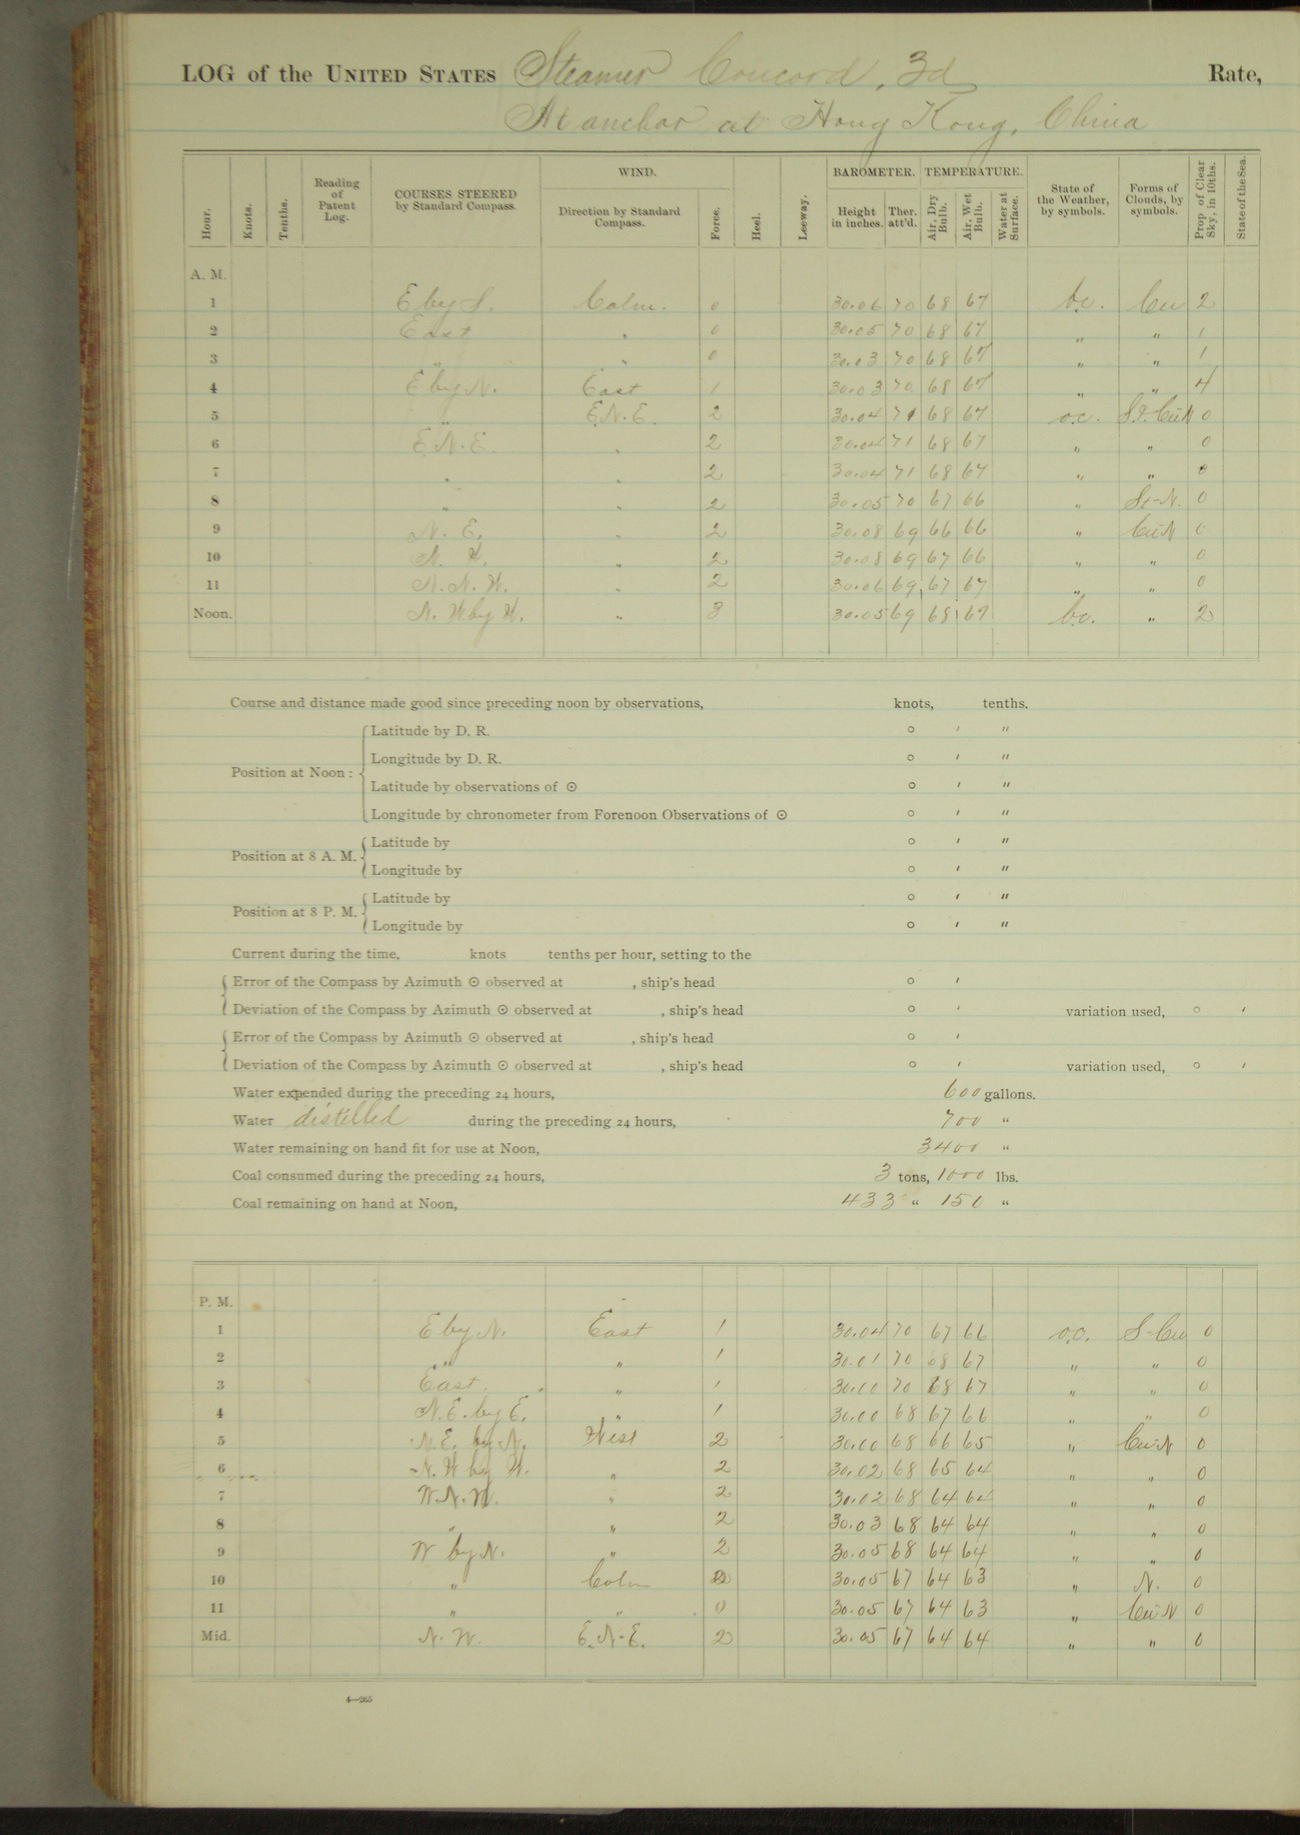 LOG of the UNITED STATES Steamer Concord, 3d Rate,
At anchor at Hong Kong, China
Hour. Knots. Tenths. Reading of Patent Log. COURSES STEERED by Standard Compass. WIND. Direction by Standard Compass. Force. Heel. Leeway. BAROMETER. Height in inches. Ther. att'd. TEMPERATURE. Air, Dry Bulb. Air, Wet Bulb. Water at Surface. State of the Weather, by symbols. Forms of Clouds, by symbols. Prop. of Clear Sky, in 10ths. State of the Sea.
A. M.
1 E by S. Calm. 0 30.06 70 68 67 b.c. Cu 2
2 East " 0 30.05 70 68 67 " " 1
3 " " 0 30.03 70 68 67 " " 1
4 E by N. East 1 30.03 70 68 67 " " 4
5 " E.N.E. 2 30.04 71 68 67 o.c. 0
6 E.N.E. " 2 30.04 71 68 67 " " 0
7 " " 2 30.04 71 68 67 " " 0
8 " " 2 30.05 70 67 66 " St-N. 0
9 N. E. " 2 30.08 69 66 66 " Cu-N 0
10 N. W. " 2 30.08 69 67 66 " " 0
11 N.N.W. " 2 30.06 69 67 67 " " 0
Noon. N. W. by W. " 3 30.05 69 68 67 b.c. " 2
Course and distance made good since preceding noon by observations, knots, tenths.
Position at Noon: Latitude by D. R. ° ′ ″
Longitude by D. R. ° ′ ″
Latitude by observations of ☉ ° ′ ″
Longitude by chronometer from Forenoon Observations of ☉ ° ′ ″
Position at 8 A. M. Latitude by ° ′ ″
Longitude by ° ′ ″
Position at 8 P. M. Latitude by ° ′ ″
Longitude by ° ′ ″
Current during the time, knots tenths per hour, setting to the
Error of the Compass by Azimuth ☉ observed at , ship's head ° ′
Deviation of the Compass by Azimuth ☉ observed at , ship's head ° ′ variation used, ° ′
Error of the Compass by Azimuth ☉ observed at , ship's head ° ′
Deviation of the Compass by Azimuth ☉ observed at , ship's head ° ′ variation used, ° ′
Water expended during the preceding 24 hours, 600 gallons.
Water distilled during the preceding 24 hours, 700 "
Water remaining on hand fit for use at Noon, 3400 "
Coal consumed during the preceding 24 hours, 3 tons, 1000 lbs.
Coal remaining on hand at Noon, 433 " 150 "
P. M.
1 E by N. East 1 30.04 70 67 66 o.c. S-Cu 0
2 " " 1 30.01 70 68 67 " " 0
3 East. " 1 30.00 70 68 67 " " 0
4 N.E. by E. " 1 30.00 68 67 66 " " 0
5 N.E. by N. West 2 30.00 68 66 65 " Cu-N 0
6 N. W by W. " 2 30.02 68 65 64 " " 0
7 W.N.W. " 2 30.02 68 64 64 " " 0
8 " " 2 30.03 68 64 64 " " 0
9 W by N. " 2 30.05 68 64 64 " " 0
10 " Calm 0 30.05 67 64 63 " N. 0
11 " " 0 30.05 67 64 63 " Cu-N 0
Mid. N. W. E.N.E. 2 30.05 67 64 64 " " 0
4—265